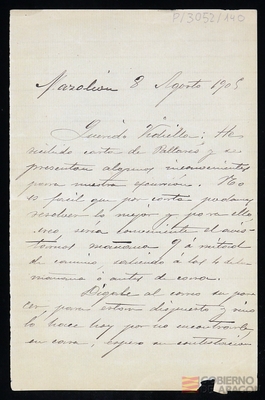 P/3052/140
Mazaleon 8 Agosto 1905
Querido Vidiella: He
recibido carta de Pallarés y se
presentan algunos inconvenientes
para nuestra excursion. No
es facil que por carta podamos
resolver lo mejor y para ello
creo sería conveniente el avis-
temos mañana 9 á mitad
de camino saliendo á las 4 de la
mañana ó antes de cenar.
Dígale al carro su pare-
cer para estar dispuesto y sino
lo hace hoy por no encontrarle
en casa, espero su contestacion
GOBIERNO
DE ARAGON